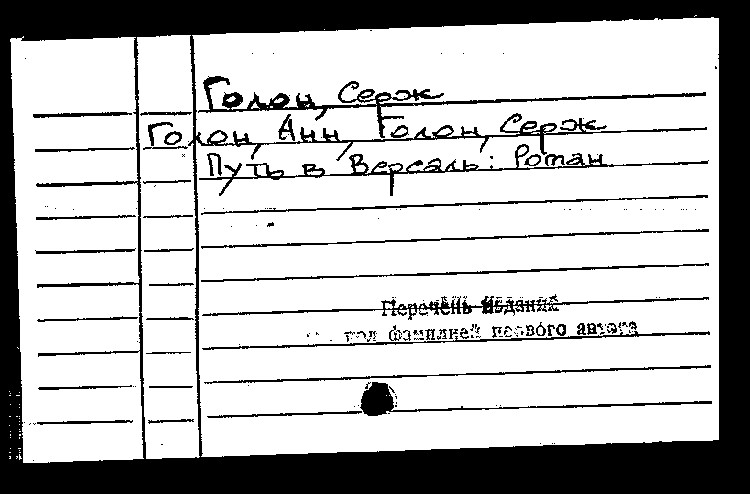 Голон, Серж
Голон, Анн, Голон, Серж
Путь в Версаль: Роман
Перечень изданий
под фамилией первого автора